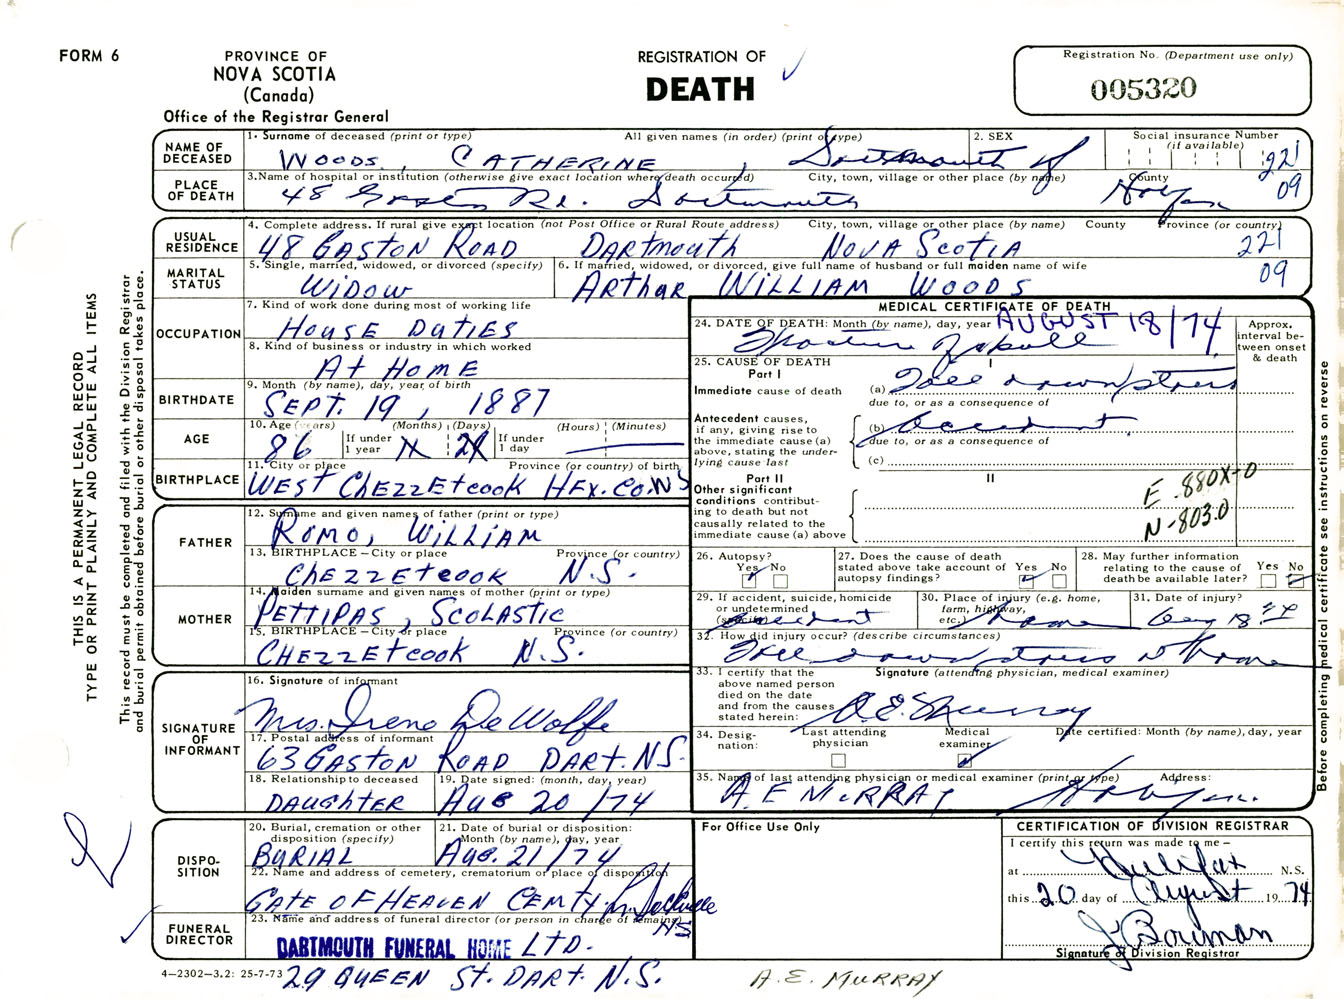 FORM 6
PROVINCE OF
NOVA SCOTIA
(Canada)
Office of the Registrar General
REGISTRATION OF
DEATH
Registration No. (Department use only)
005320
THIS IS A PERMANENT LEGAL RECORD
TYPE OR PRINT PLAINLY AND COMPLETE ALL ITEMS
This record must be completed and filed with the Division Registrar
and burial permit obtained before burial or other disposal takes place.
NAME OF DECEASED
1. Surname of deceased (print or type) All given names (in order) (print or type)
WOODS, CATHERINE, Dartmouth
2. SEX
F
Social insurance Number
(if available)
221
PLACE OF DEATH
3. Name of hospital or institution (otherwise give exact location where death occurred) City, town, village or other place (by name) County
48 Gaston Rd. Dartmouth Halifax 09
USUAL RESIDENCE
4. Complete address. If rural give exact location (not Post Office or Rural Route address) City, town, village or other place (by name) County Province (or country)
48 GASTON ROAD DARTMOUTH NOVA SCOTIA 221
09
MARITAL STATUS
5. Single, married, widowed, or divorced (specify)
WIDOW
6. If married, widowed, or divorced, give full name of husband or full maiden name of wife
ARTHUR WILLIAM WOODS
OCCUPATION
7. Kind of work done during most of working life
HOUSE DUTIES
8. Kind of business or industry in which worked
AT HOME
BIRTHDATE
9. Month (by name), day, year of birth
SEPT. 19, 1887
AGE
10. Age (years) If under 1 year (Months) (Days) If under 1 day (Hours) (Minutes)
86
BIRTHPLACE
11. City or place Province (or country) of birth
WEST CHEZZETCOOK HFX. CO. NS
FATHER
12. Surname and given names of father (print or type)
ROMO, WILLIAM
13. BIRTHPLACE – City or place Province (or country)
CHEZZETCOOK N.S.
MOTHER
14. Maiden surname and given names of mother (print or type)
PETTIPAS, SCOLASTIC
15. BIRTHPLACE – City or place Province (or country)
CHEZZETCOOK N.S.
SIGNATURE OF INFORMANT
16. Signature of informant
Mrs. Irene DeWolfe
17. Postal address of informant
63 GASTON ROAD DART. N.S.
18. Relationship to deceased
DAUGHTER
19. Date signed: (month, day, year)
AUG 20/74
DISPOSITION
20. Burial, cremation or other disposition (specify)
BURIAL
21. Date of burial or disposition: Month (by name), day, year
AUG. 21/74
22. Name and address of cemetery, crematorium or place of disposition
GATE OF HEAVEN CEMTY L. Sackville
N.S
FUNERAL DIRECTOR
23. Name and address of funeral director (or person in charge of remains)
DARTMOUTH FUNERAL HOME LTD.
29 QUEEN ST. DART. N.S.
4–2302–3.2: 25-7-73
MEDICAL CERTIFICATE OF DEATH
24. DATE OF DEATH: Month (by name), day, year AUGUST 18/74
Fracture of skull
Approx. interval between onset & death
25. CAUSE OF DEATH
Part I
I
Immediate cause of death
(a) Fell down stairs
due to, or as a consequence of
Antecedent causes, if any, giving rise to the immediate cause (a) above, stating the underlying cause last
(b) Accident
due to, or as a consequence of
(c)
Part II
II
Other significant conditions contributing to death but not causally related to the immediate cause (a) above
E .880X-0
N-803.0
26. Autopsy?
Yes No
27. Does the cause of death stated above take account of autopsy findings?
Yes No
28. May further information relating to the cause of death be available later?
Yes No
29. If accident, suicide, homicide or undetermined (specify)
accident
30. Place of injury (e.g. home, farm, highway, etc.)
home
31. Date of injury?
Aug 18
32. How did injury occur? (describe circumstances)
Fell down stairs at home
33. I certify that the above named person died on the date and from the causes stated herein:
Signature (attending physician, medical examiner)
A.E. Murray
34. Designation:
Last attending physician
Medical examiner
Date certified: Month (by name), day, year
35. Name of last attending physician or medical examiner (print or type) Address:
A E MURRAY Halifax.
Before completing medical certificate see instructions on reverse
For Office Use Only
CERTIFICATION OF DIVISION REGISTRAR
I certify this return was made to me –
at Halifax N.S.
this 20 day of August 1974
J. Bowman
Signature of Division Registrar
A.E. MURRAY